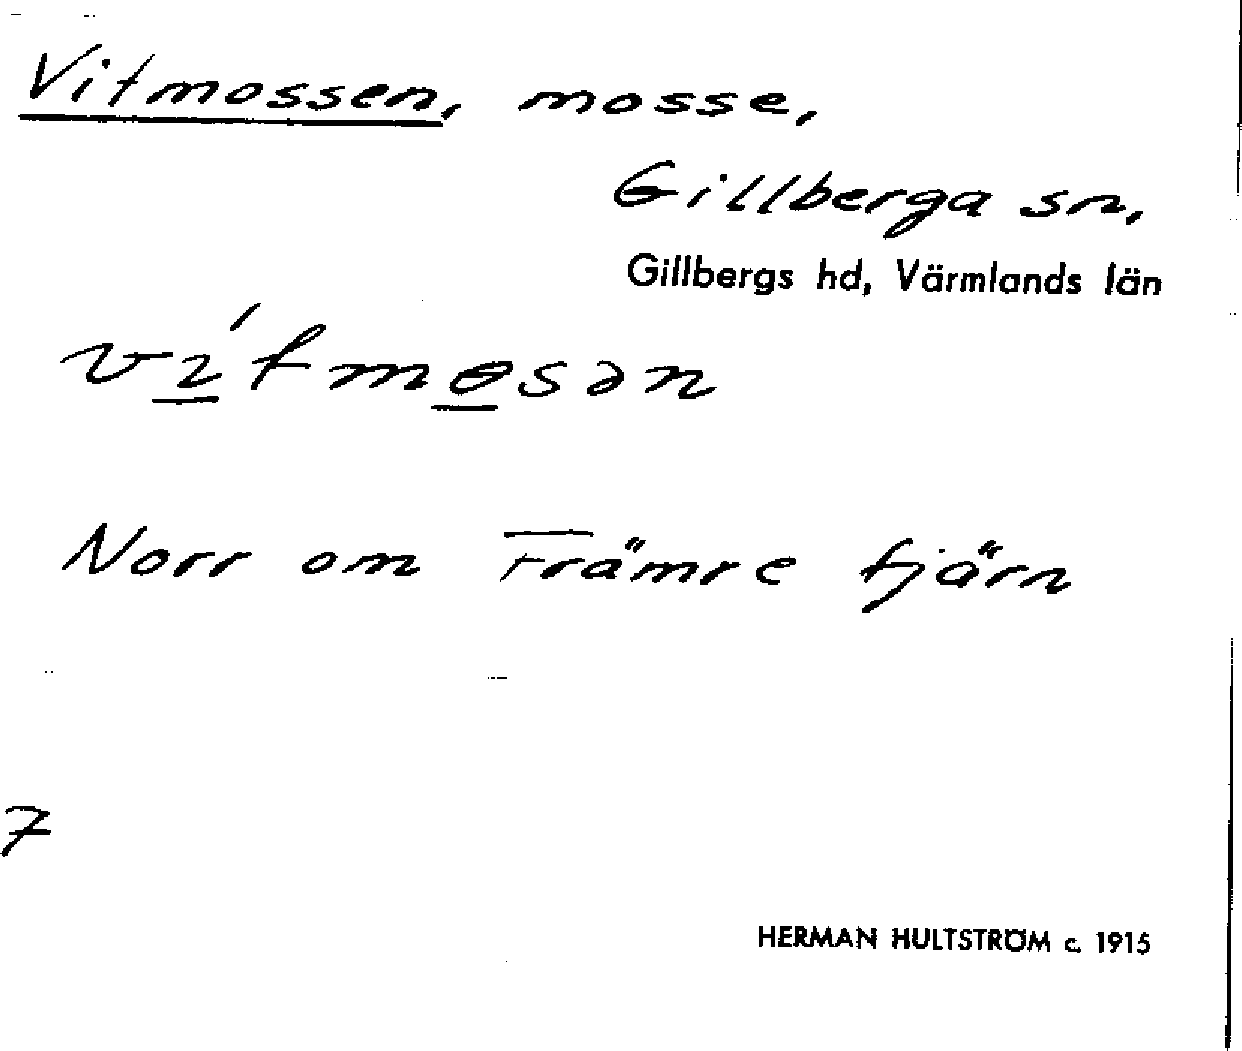 Vitmossen, mosse,
Gillberga sn,
Gillbergs hd, Värmlands län
vítmɵsən
Norr om Främre tjärn
7
HERMAN HULTSTRÖM c. 1915